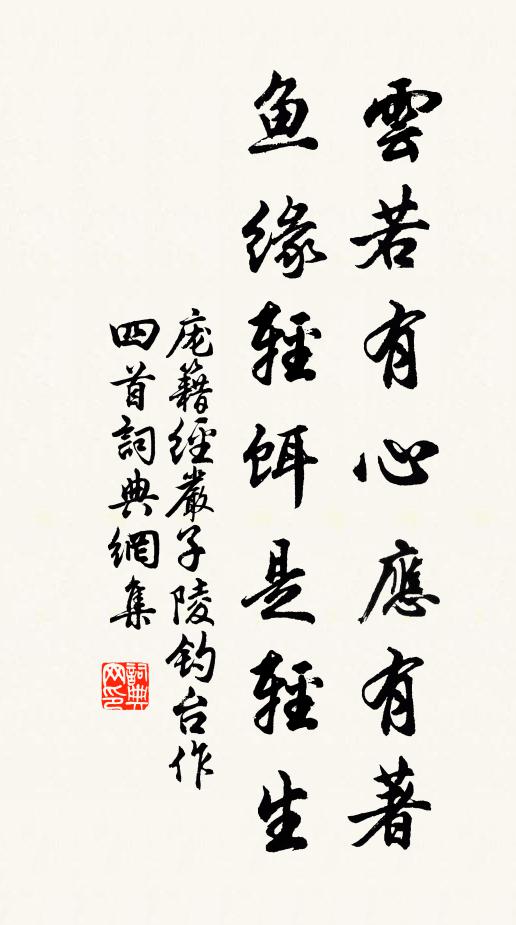 雲若有心應有著
鱼緣輕餌是輕生
庞籍經嚴子陵钓台作
四首詞典網集
詞典
网印